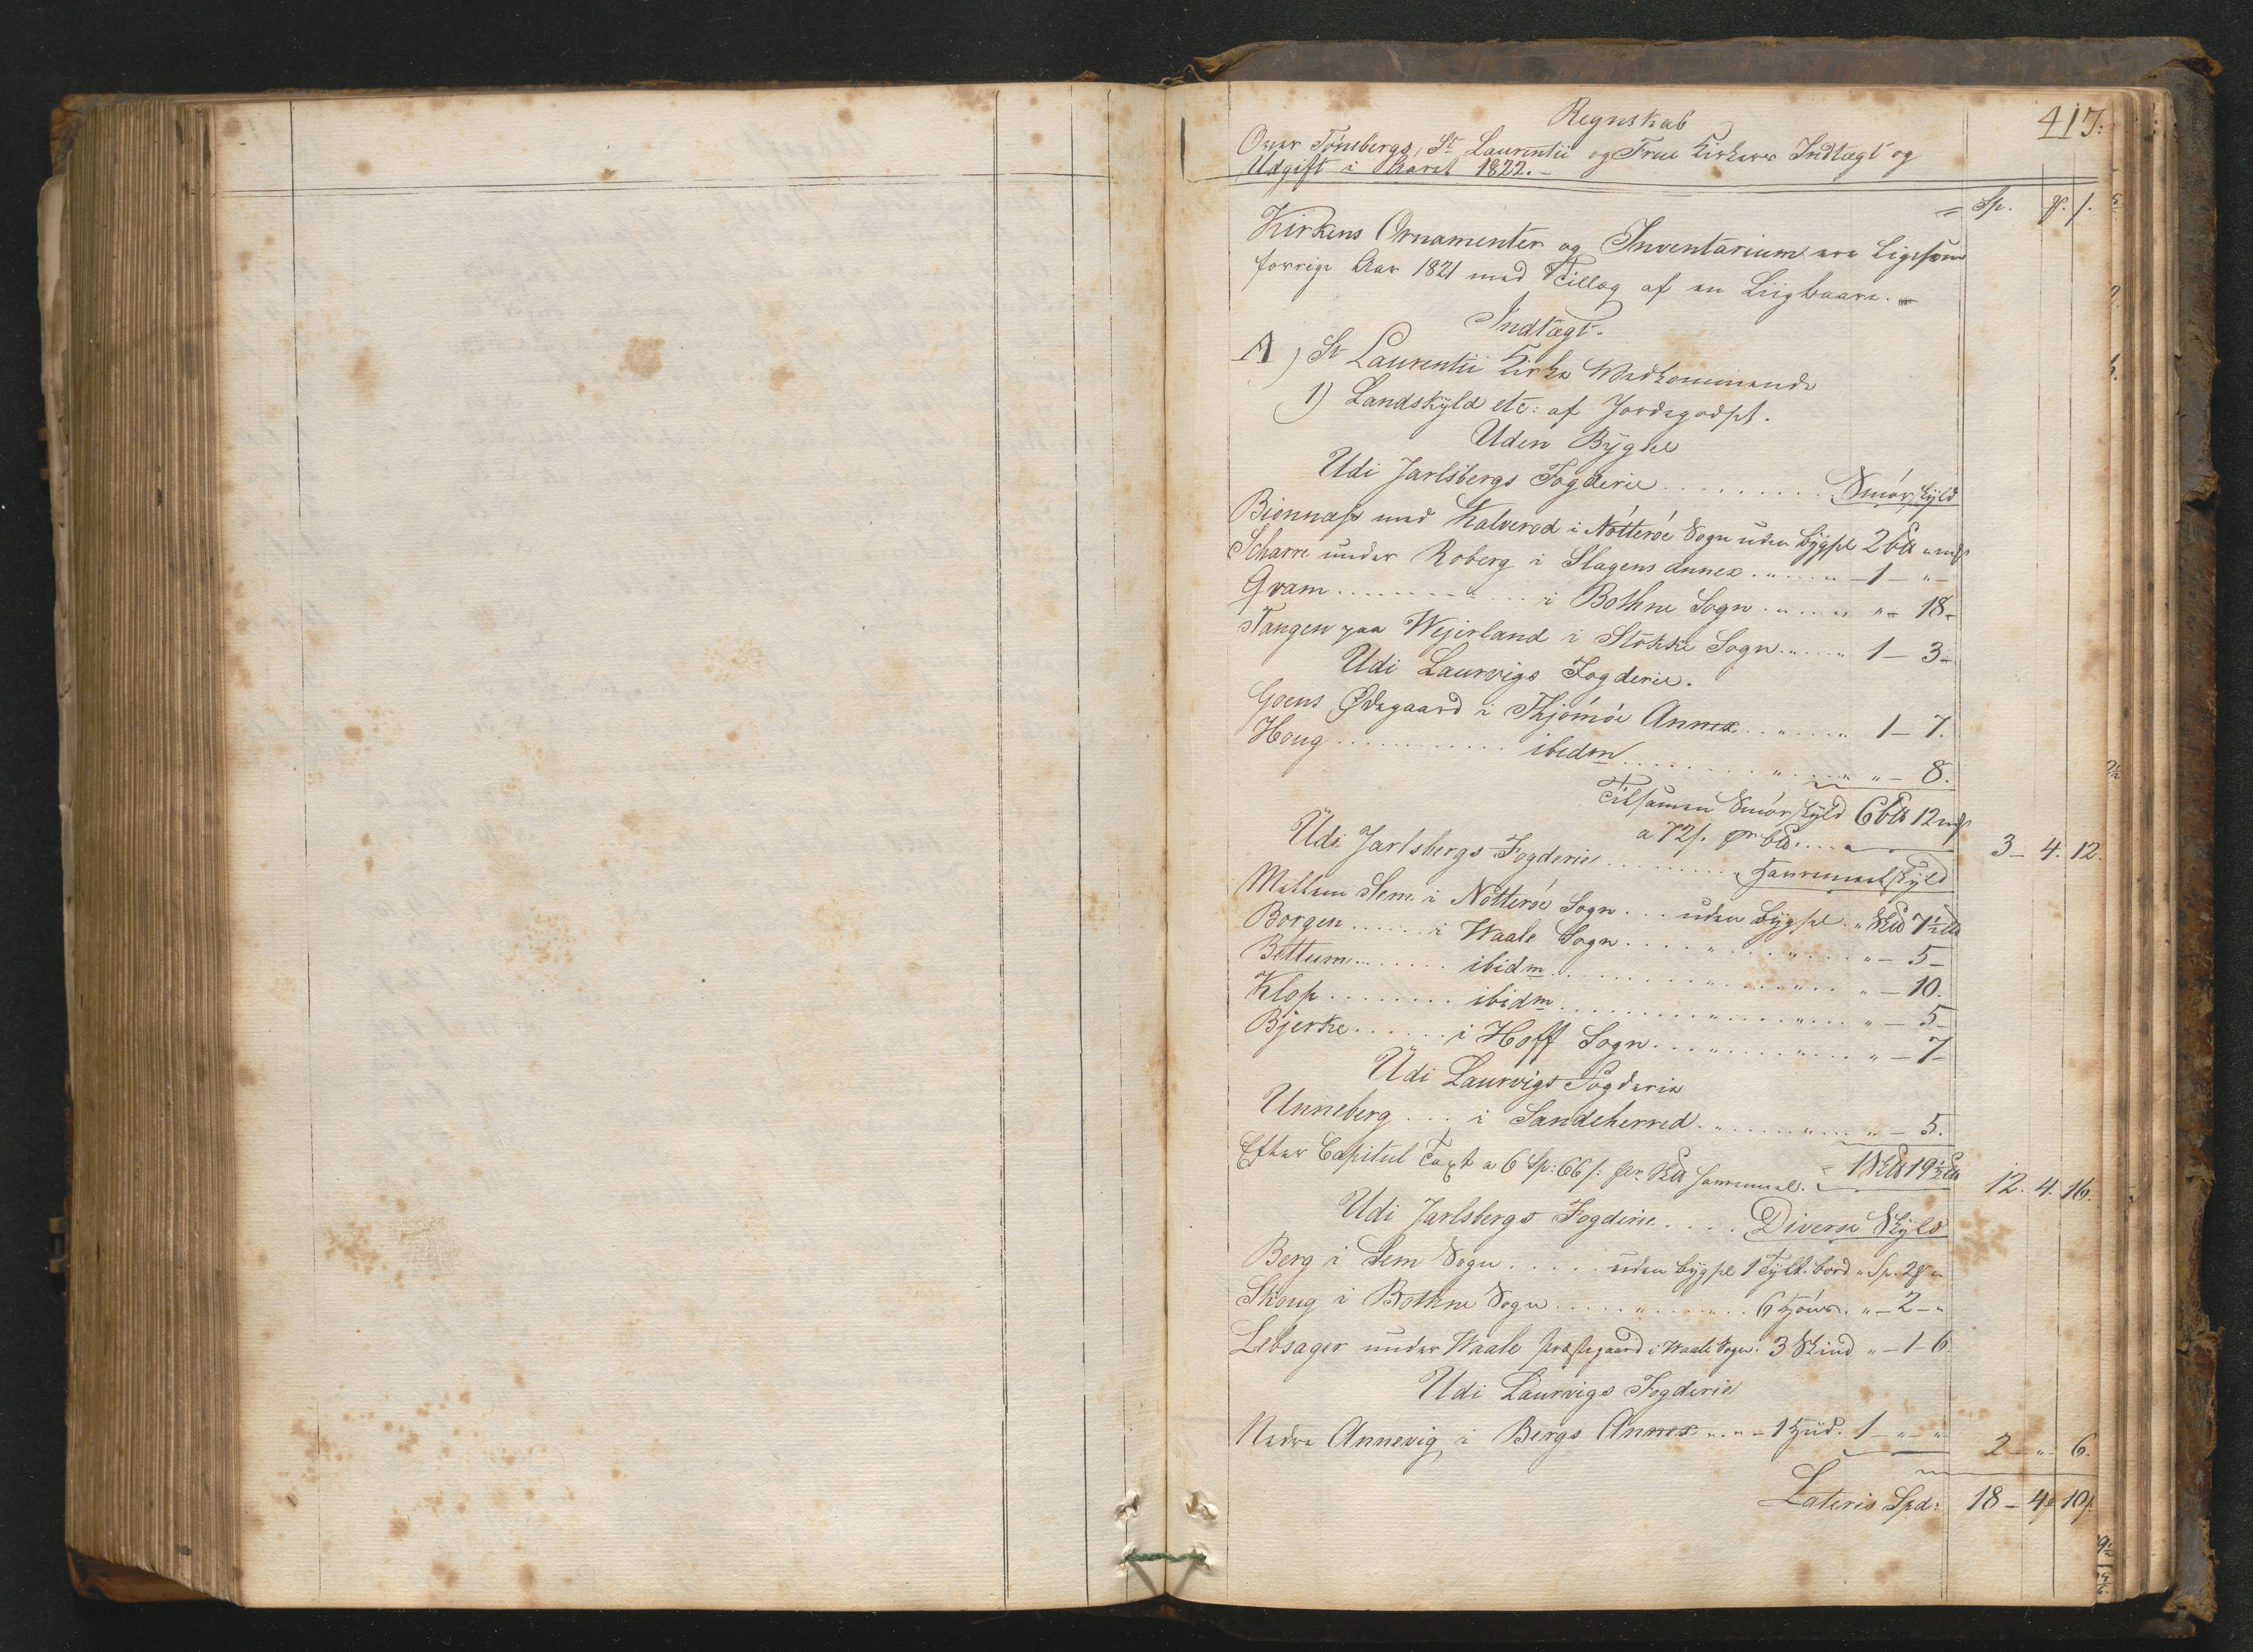 417.
Regnskab
Over Tönsbergs, St. Laurentii og Frue Kirkers Indtægt og
Udgift i Aaret 1822. –
Sp. ₰. s.
Kirkens Ornamenter og Inventarium ere ligesom
forrige Aar 1821 med Tillæg af en Liigbaare.
Indtægt.
A) St Laurentii Kirke Vedkommende
1) Landskÿld etc: af Jordegodset.
Uden Bÿgsel
Udi Jarlsbergs Fogderie ......... Smörskÿld
Bionnæss med Kalverød i Nötteröe Sogn uden bÿgsel 2 b℔ " mk
Scharre under Roberg i Slagens Annex. " .... " – 1 – " –
Gram ............ i Bothne Sogn. " .... " " – 18 –
Tangen paa Wejerland i Stokke Sogn. " .... " 1 – 3 –
Udi Laurvigs Fogderie.
Goens Ødegaard i Thjömöe Annex .. " .... " 1 – 7.
Houg ............ ibidm ........ " .... " " – 8.
Tilsamen Smörskÿld 6 b℔ 12 mk
a 72 s. pr b℔. .... 3 – 4. 12.
Udi Jarlsbergs Fogderie ....... Kornmaelskÿld
Mellem Sem i Nötteröe Sogn ... uden bÿgsel. " Sk℔ 7½ ℔
Borgen ...... i Waale Sogn .... " ...... " .... " – 5 –
Bettum ....... ibidm ........ " ...... " .... " – 10.
Klop ........ ibidm ........ " ...... " .... " – 5 –
Bjerke ...... i Hoff Sogn .... " ...... " .... " – 7 –
Udi Laurvigs Fogderie
Unneberg ... i Sandeherred. " ...... " .... " – 5.
Efter Capitul Taxt a 6 Sp: 66 s: pr. Sk℔ – 1 Sk℔ 19½ ℔ 12. 4. 16.
Udi Jarlsbergs Fogderie .... Diverse Skÿld
Berg i Sem Sogn ..... uden bÿgsel 1 Tÿlt. bord " Sp. 2 ₰ "
Skoug i Bothne Sogn ..... " ...... 6 " – 2 – "
Lebsager under Waale Præstegaard i Waale Sogn. 3 Skind " – 1 – 6
Udi Laurvigs Fogderie
Nedre Annevig i Bergs Annex " .. " – 1 Hud. 1 – " – " 2 – " 6.
Lateris Spd: 18 – 4 ₰ 10 s.